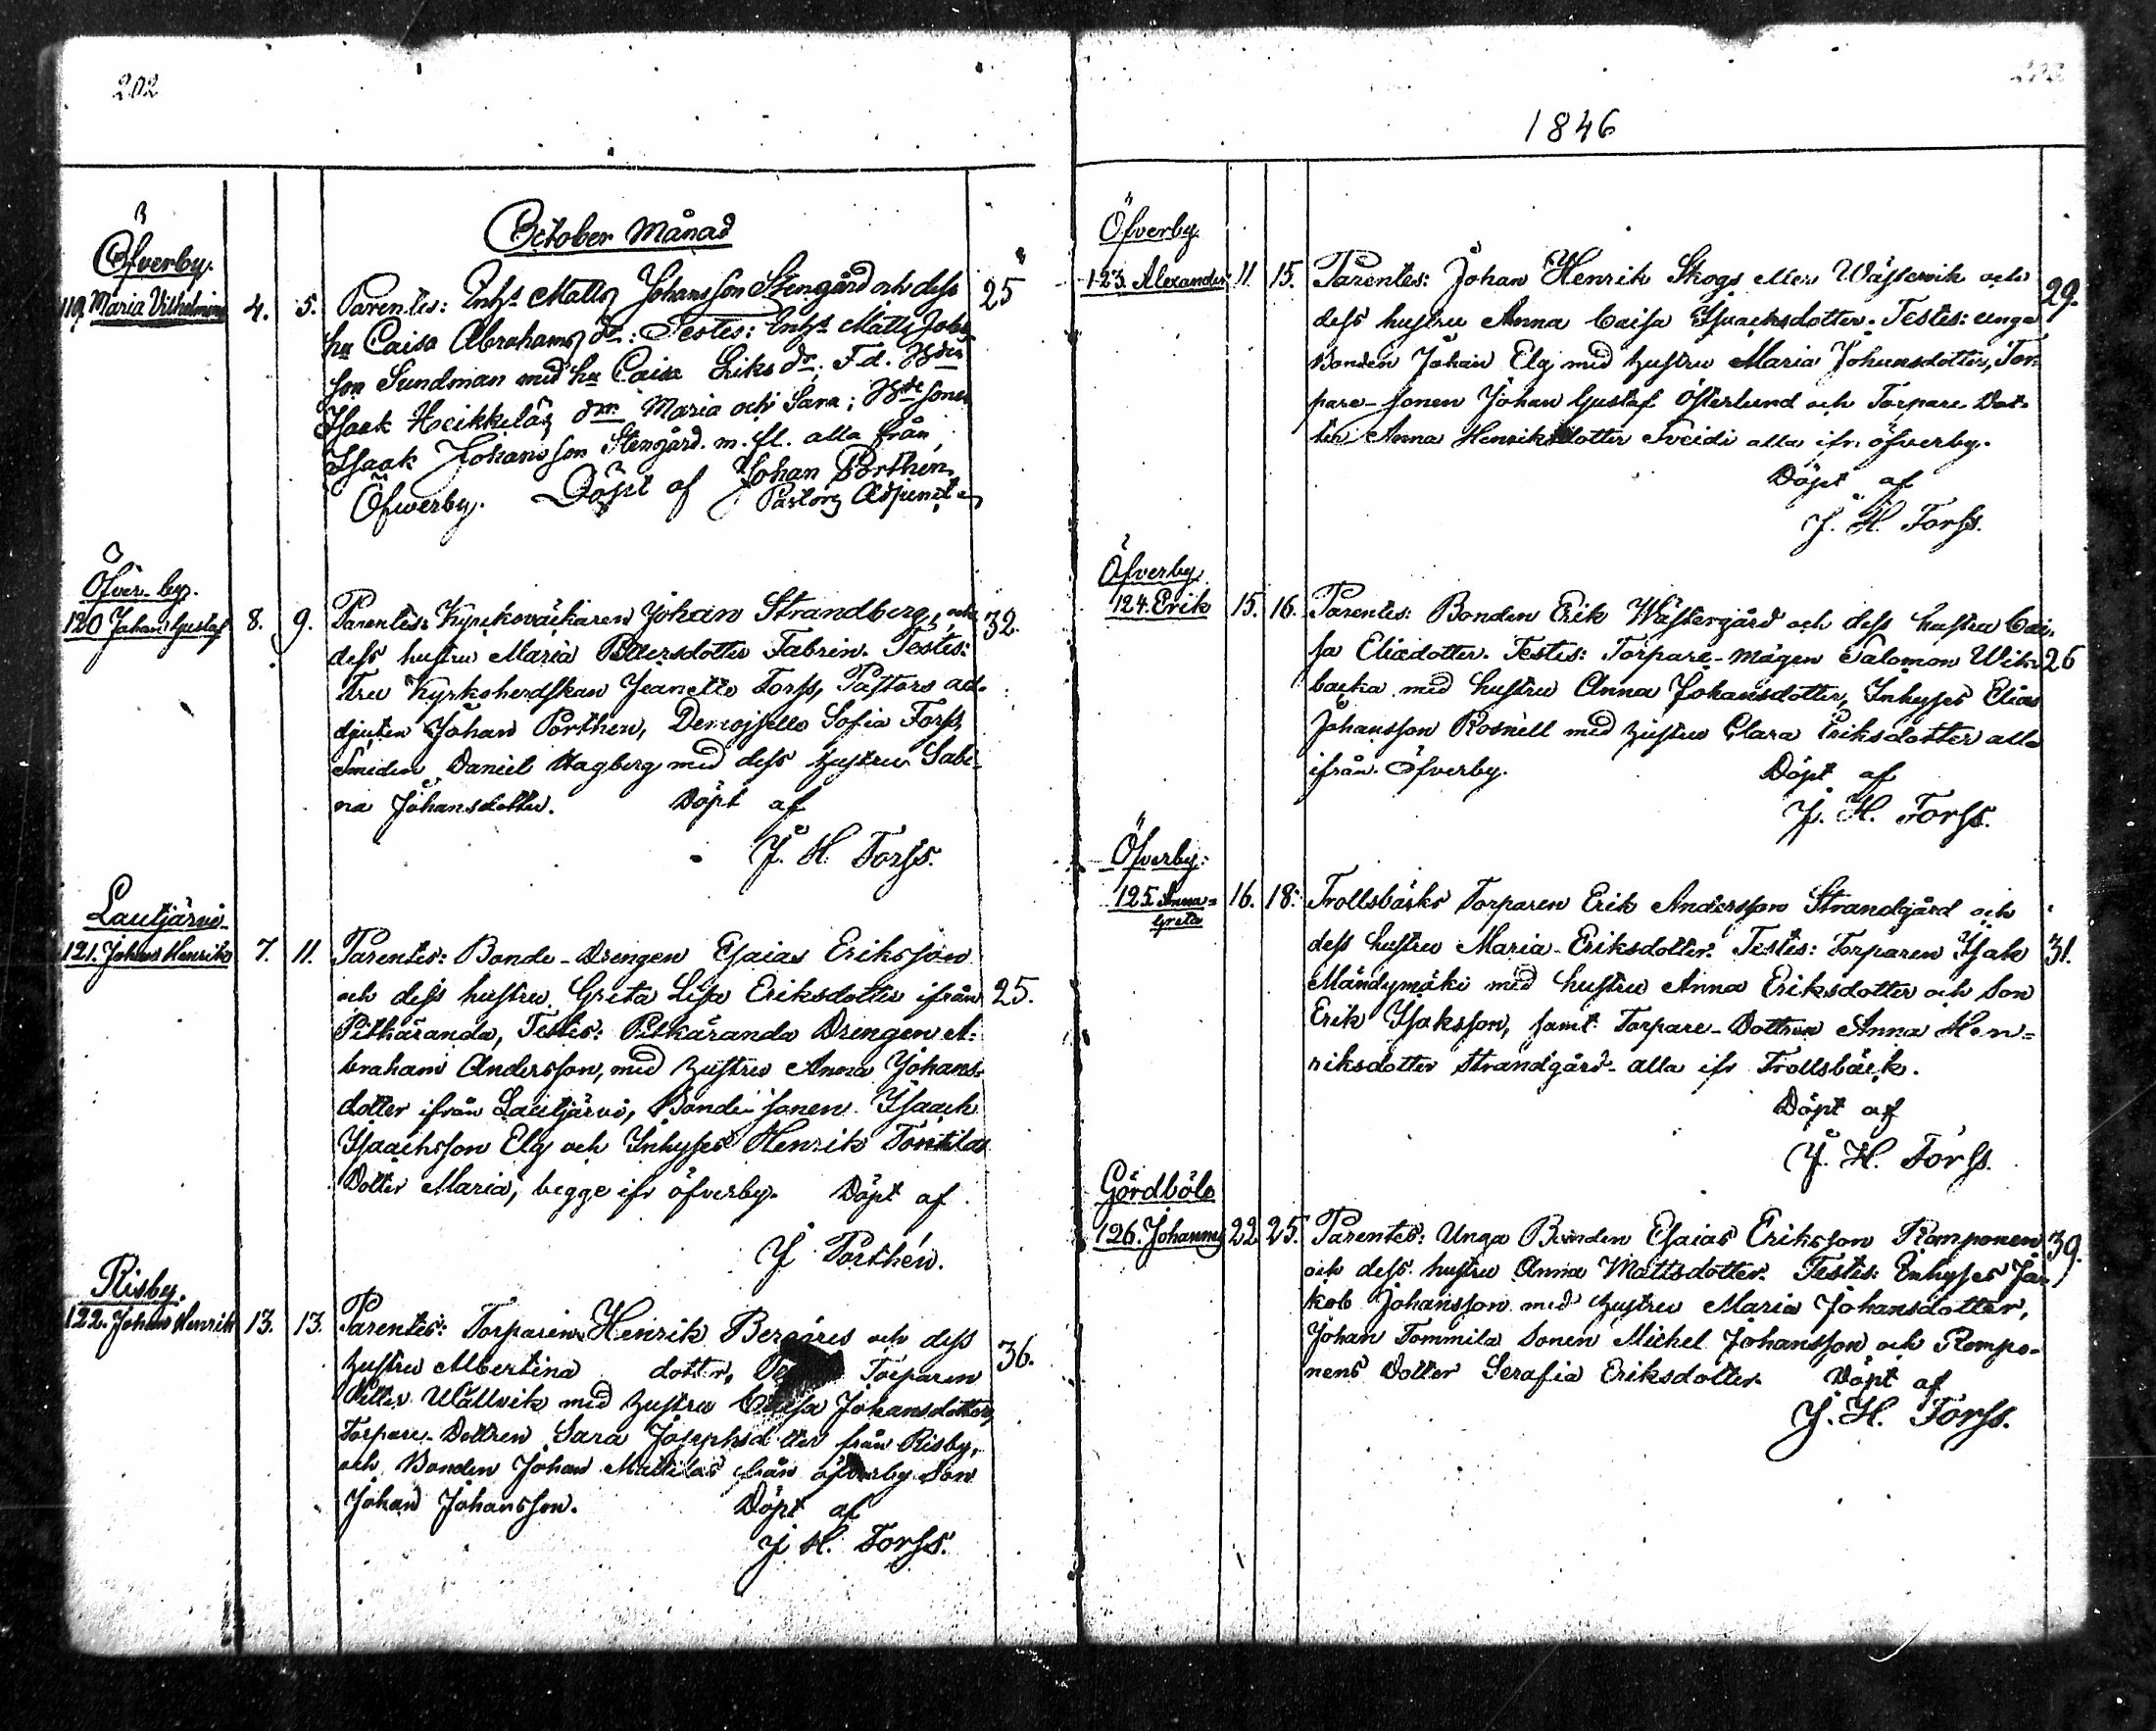 202
October Månad
Öfverby.
119 Maria Vilhelmina 4. 5. Parentes: Inhs Matts Johansson Stengård och dess 25
hu Caisa Abrahams dr: Testes: Inhs Matts Johs
son Sundman med hu Caisa Eriks dr; F.d. Bdn
Isaak Heikkiläs drar Maria och Sara; Bde sonen
Isaak Johansson Stengård m. fl. alla från
Öfwerby. Döpt af Johan Porthén
Pastors Adjunct
Öfver-by.
120 Johan Gustaf 8. 9. Parentes: Kyrkoväktaren Johan Strandberg, och 32.
dess hustru Maria Pettersdotter Fabrin. Testes:
Fru Kyrkoherdskan Jeanette Forss, Pastors ad-
djuten Johan Porthen, Demoiselle Sofia Forss,
Smeden Daniel Hagberg med dess hustru Sabi-
na Johansdotter. Döpt af
J. H. Forss.
Lautjärvi
121. Johan Henrik 7. 11. Parentes: Bonde-Drengen Esaias Eriksson
och dess hustru Greta Lisa Eriksdotter ifrån 25.
Pitkäranda, Testes: Pitkäranda Drengen A-
braham Andersson, med hustru Anna Johans-
dotter ifrån Lautjärvi, Bonde sonen Isaach
Isaachsson Elg och Inhyses Henrik Tönttilas
Dotter Maria, begge ifr öfverby. Döpt af
J Porthén.
Risby.
122. Johan Henrik 13. 13. Parentes: Torparen Henrik Bergåres och dess 36.
hustru Albertina dotter, Torparen
Petter Wällvik med hustru Caisa Johansdotter,
Torpare-Dottren Sara Josephsdotter från Risby,
och Bonden Johan Mattilas från öfverby Son
Johan Johansson. Döpt af
J H. Forss.
1846
Öfverby
123. Alexander 11. 15. Parentes: Johan Henrik Skogs eller Wästervik och 29.
dess hustru Anna Caisa Isaachsdotter. Testes: unga
Bonden Johan Elg med hustru Maria Johansdotter, Tor-
pare-sonen Johan Gustaf Österlund och Torpare Dot-
ter Anna Henriksdotter Sveidi alla ifr. öfverby.
Döpt af
J. H. Forss.
Öfverby
124. Erik 15. 16. Parentes: Bonden Erik Wästergård och dess hustru Cai-
sa Eliædotter. Testes: Torpare-mågen Salomon Wik- 26
backa med hustru Anna Johansdotter, Inhyses Elias
Johansson Rosnell med hustru Clara Eriksdotter alla
ifrån Öfverby. Döpt af
J. H. Forss.
Öfverby:
125. Anna= 16. 18. Trollsbäcks Torparen Erik Andersson Strandgård och
Greta
dess hustru Maria Eriksdotter. Testes: Torparen Isak 31.
Mändymäki med hustru Anna Eriksdotter och Son
Erik Isaksson, samt Torpare-Dottren Anna Hen=
riksdotter Strandgård alla ifr Trollsbäck.
Döpt af
J. H. Forss.
Gördböle
126. Johannes 22 25. Parentes: Unga Bonden Esaias Eriksson Romponen 39.
och dess hustru Anna Mattsdotter. Testes: Inhyses Ja-
kob Johansson med hustru Maria Johansdotter,
Johan Tommila Sonen Michel Johansson och Rompo-
nens Dotter Serafia Eriksdotter. Döpt af
J. H. Forss.